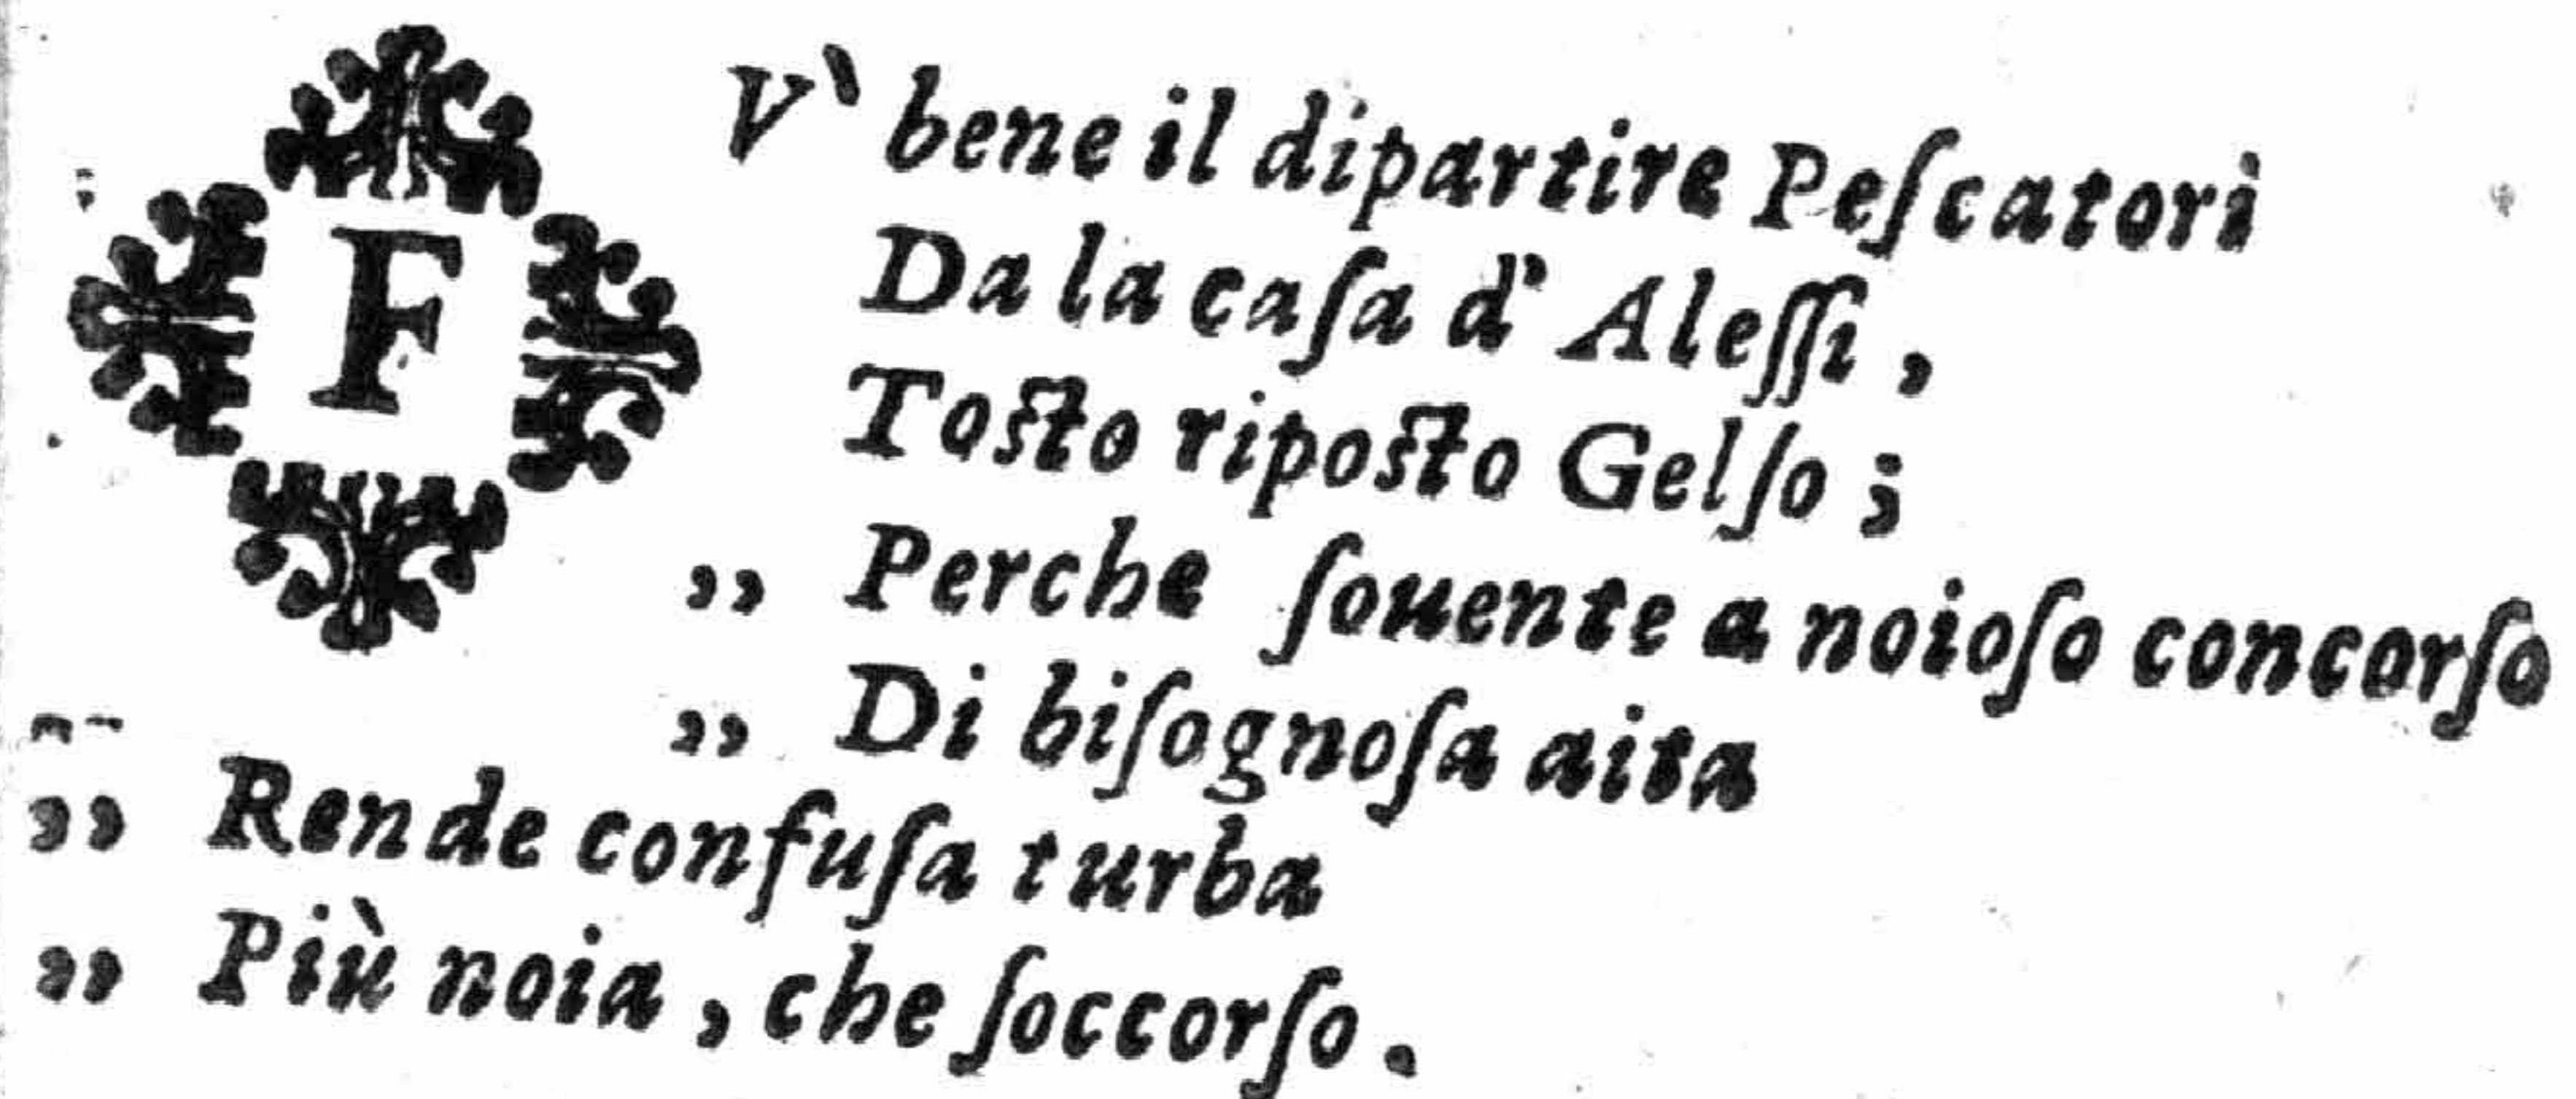 FV` bene il dipartire Peſcatori
Da la caſa d' Aleſſi,
Toſto ripoſto Gelſo;
,, Perche ſouente a noioſo concorſo
,, Di biſognoſa aita
,, Rende confuſa turba
,, Più noia, che ſoccorſo.